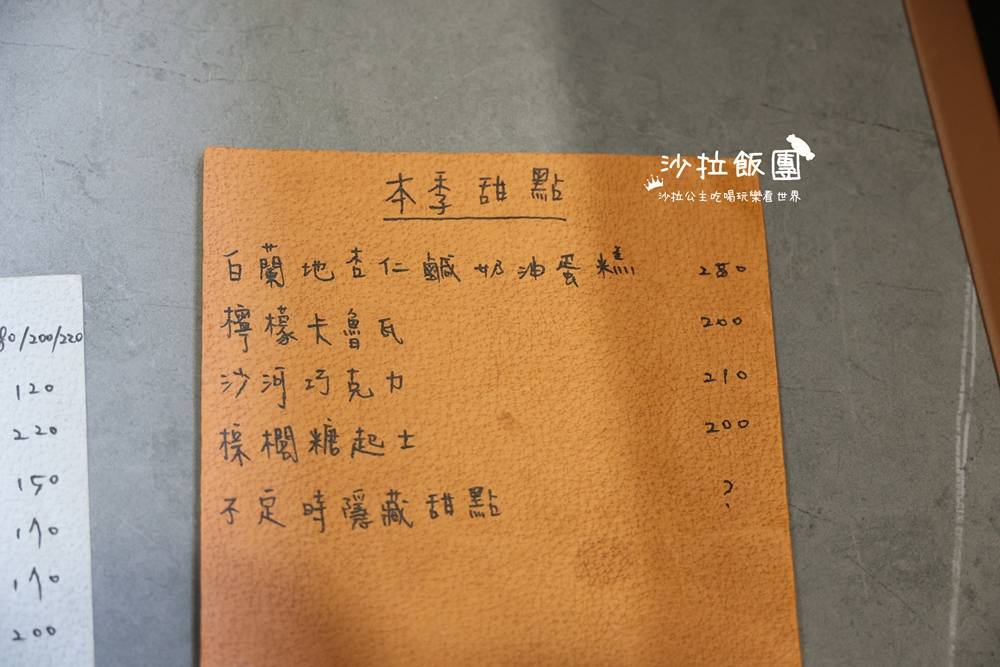 沙拉飯團
沙拉公主吃喝玩樂看世界
本季甜點
白蘭地杏仁鹹奶油蛋糕 280
檸檬卡魯瓦 200
沙河巧克力 210
棕櫚糖起士 200
不定時隱藏甜點 ?
80/200/220
120
220
150
170
170
200